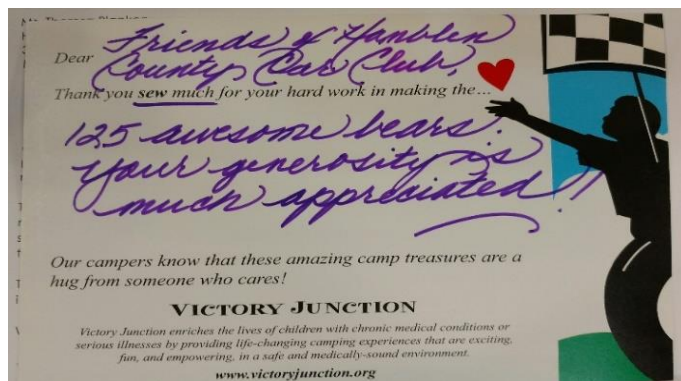 Dear Friends of Hamblen
County Car Club,
Thank you sew much for your hard work in making the...
125 awesome bears.
Your generosity is
much appreciated!!
Our campers know that these amazing camp treasures are a
hug from someone who cares!
VICTORY JUNCTION
Victory Junction enriches the lives of children with chronic medical conditions or
serious illnesses by providing life-changing camping experiences that are exciting,
fun, and empowering, in a safe and medically-sound environment.
www.victoryjunction.org